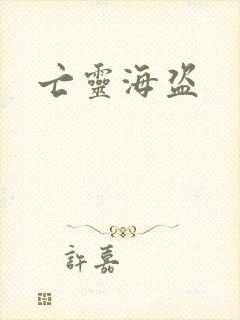 亡靈海盜
許嘉